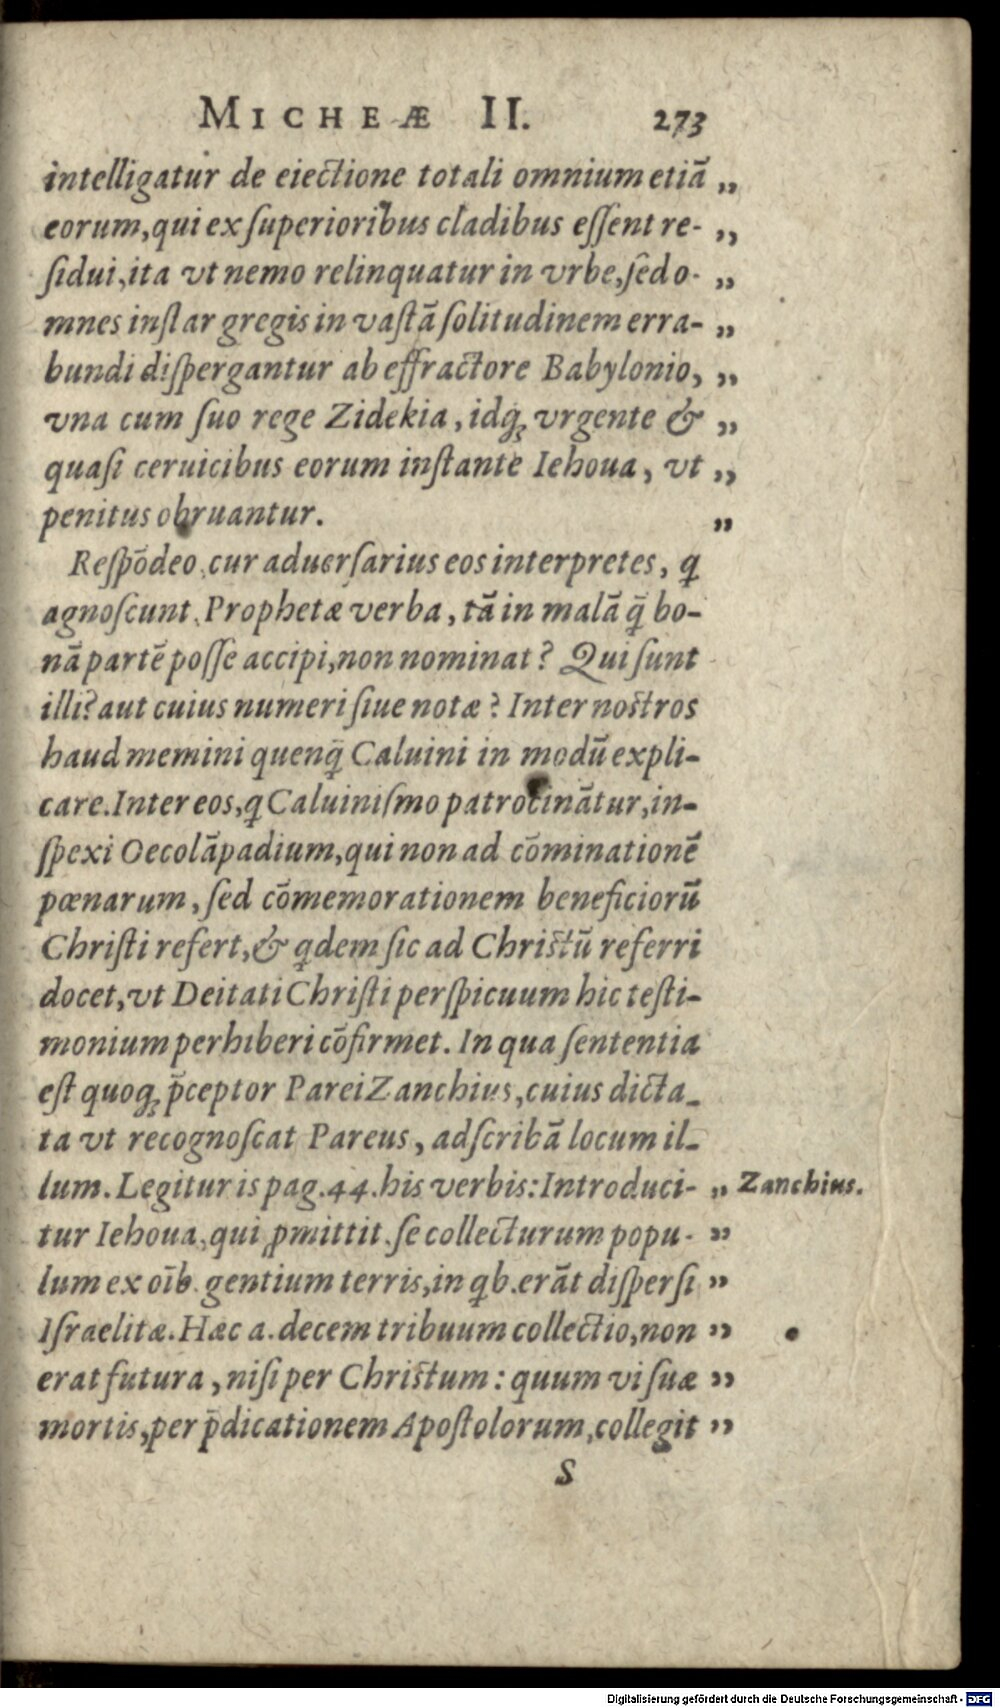 MICHEÆ II. 273
intelligatur de eiectione totali omnium etiã „
eorum, qui ex ſuperioribus cladibus eſſent re- „
ſidui, ita vt nemo relinquatur in vrbe, ſed o- „
mnes inſtar gregis in vaſtã ſolitudinem erra- „
bundi diſpergantur ab effractore Babylonio, „
vna cum ſuo rege Zidekia, idq́ꝫ vrgente & „
quaſi ceruicibus eorum inſtante Iehoua, vt „
penitus obruantur. „
Reſpõdeo, cur aduerſarius eos interpretes, q
agnoſcunt, Prophetæ verba, tã in malã q̃ bo-
nã partẽ poſſe accipi, non nominat? Qui ſunt
illi? aut cuius numeri ſiue notæ? Inter noſtros
haud memini quenq̃ Caluini in modũ expli-
care. Inter eos, q Caluiniſmo patrocinãtur, in-
ſpexi Oecolãpadium, qui non ad cõminationẽ
pœnarum, ſed cõmemorationem beneficiorũ
Chriſti refert, & qdem ſic ad Chriſtũ referri
docet, vt Deitati Chriſti perſpicuum hic teſti-
monium perhiberi cõfirmet. In qua ſententia
eſt quoqꝫ p̃ceptor Parei Zanchius, cuius dicta-
ta vt recognoſcat Pareus, adſcribã locum il-
lum. Legitur is pag. 44. his verbis: Introduci- „ Zanchius.
tur Iehoua, qui ꝓmittit, ſe collecturum popu- „
lum ex oĩb. gentium terris, in qb. erãt diſperſi „
Iſraelitæ. Hæc a. decem tribuum collectio, non „
erat futura, niſi per Chriſtum: quum vi ſuæ „
mortis, per p̃dicationem Apoſtolorum, collegit „
S
Digitalisierung gefördert durch die Deutsche Forschungsgemeinschaft - DFG